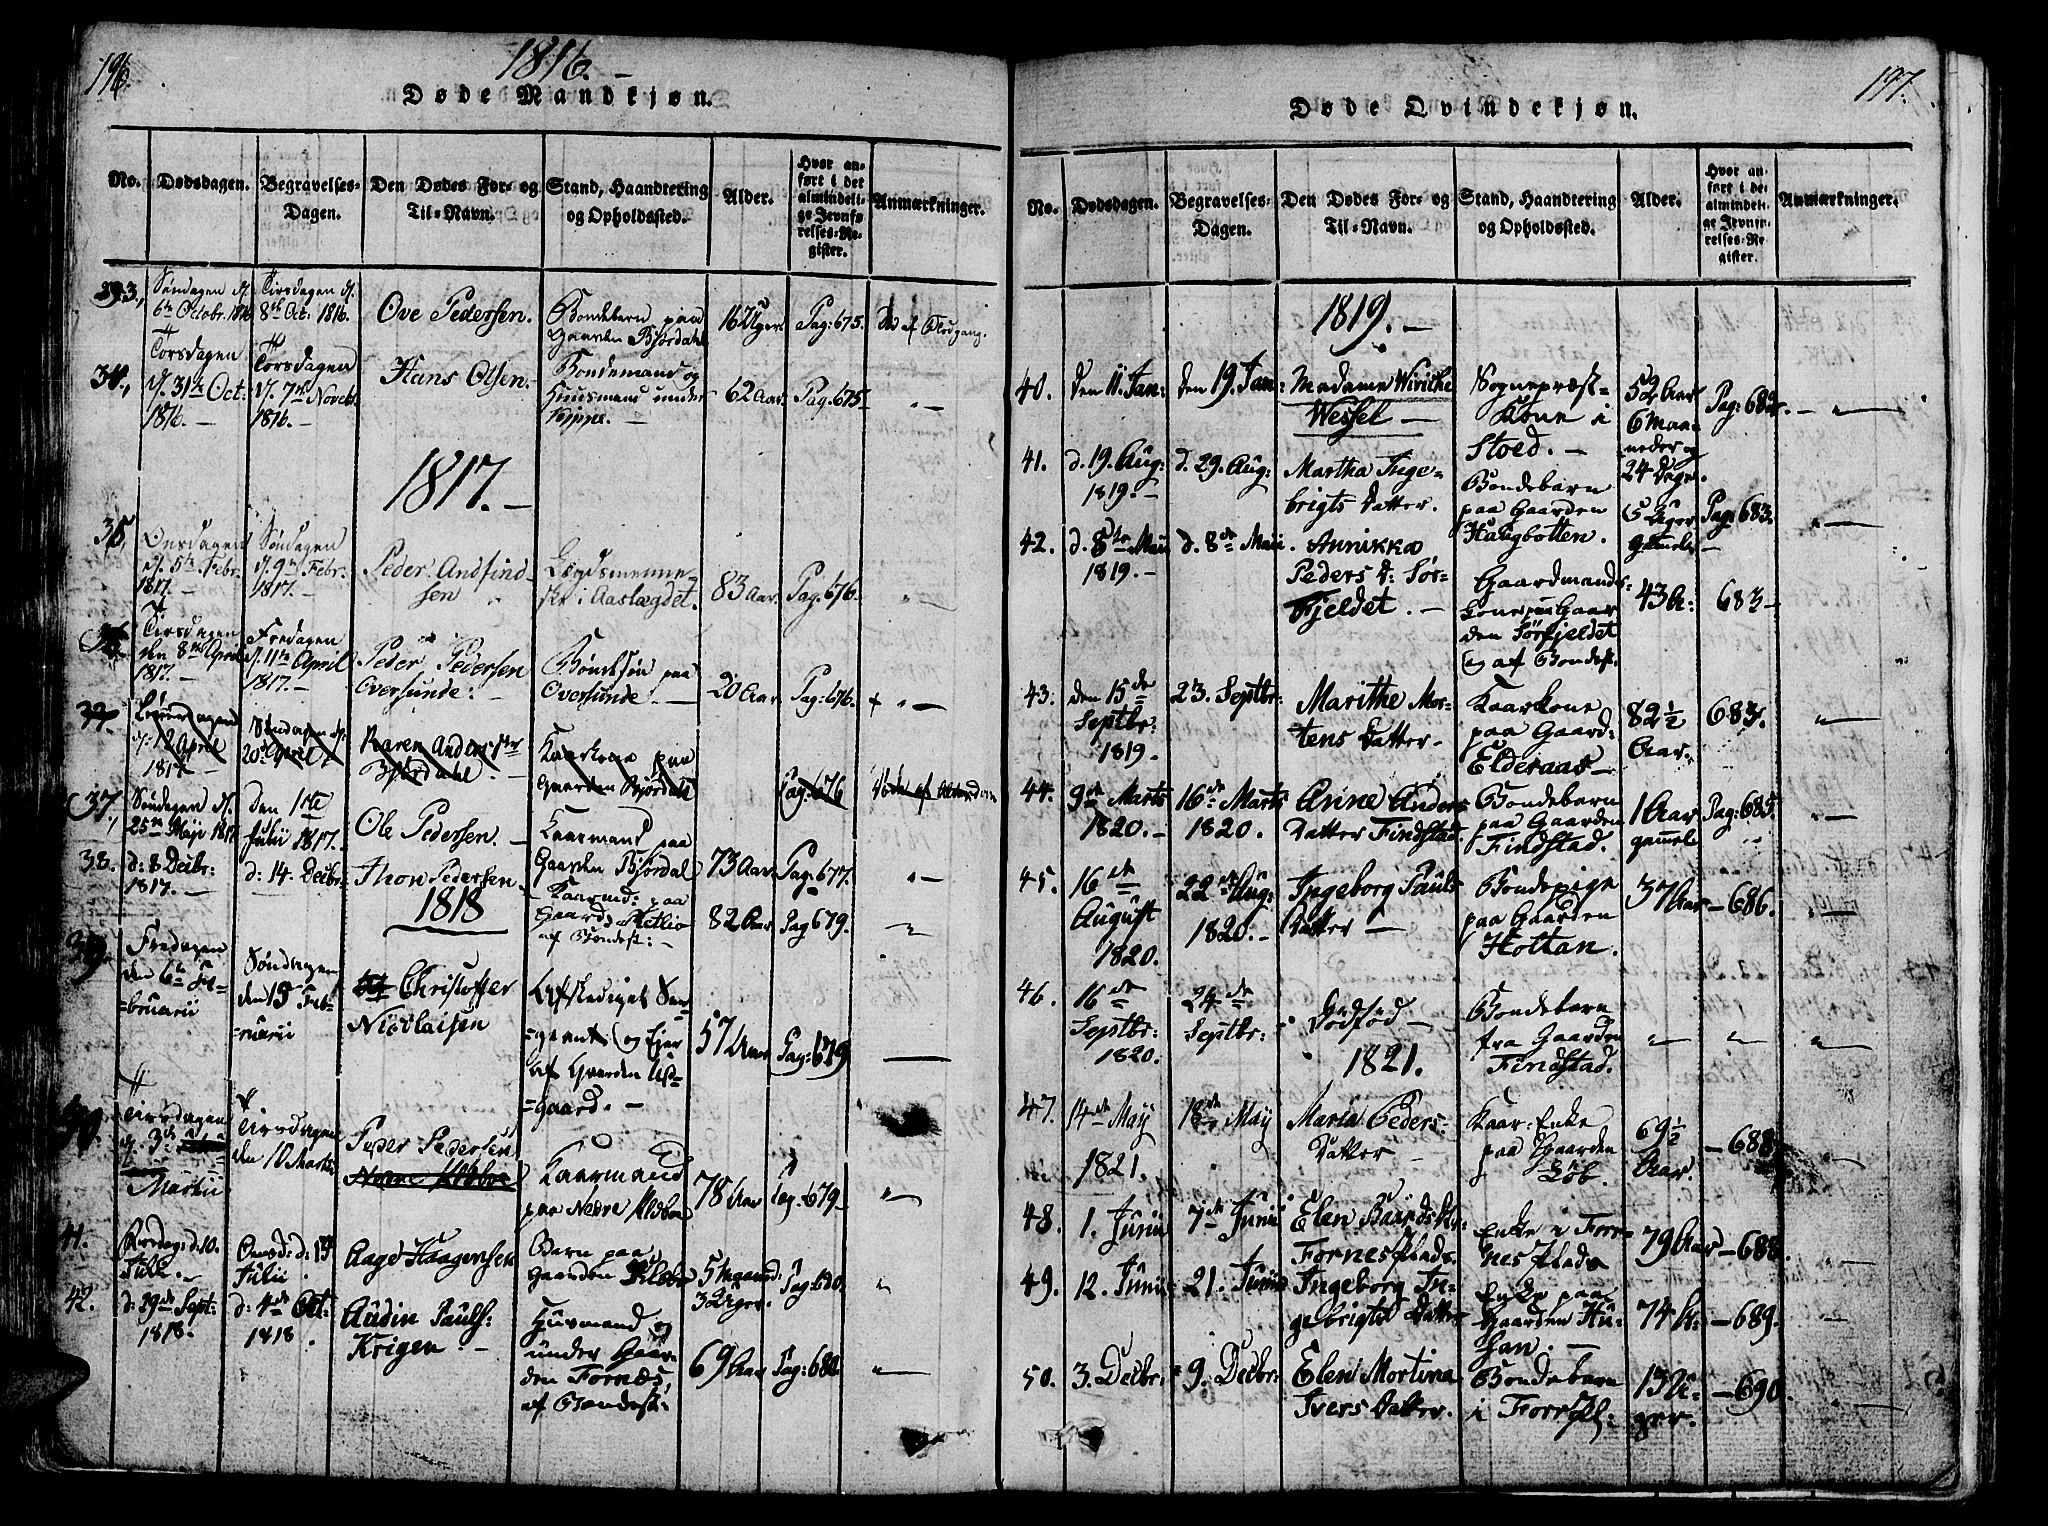 196.
1816. –
Døde Mandkjøn.
No.
Dødsdagen.
Begravelses-
Dagen.
Den Dødes For- og
Til-Navn.
Stand, Haandtering
og Opholdssted.
Alder.
Hvor an-
ført i det
almindeli-
ge Jevnfø-
relses-Re-
gister.
Anmærkninger.
Søndagen d.
6te Octobr. 1816
Tirsdagen d.
8de Oct: 1816.
Ove Pedersen.
Bondebarn paa
Gaarden Bjørdahl
16 Uger
Pag: 675.
34.,
Torsdagen
d. 31te Oct:
1816. –
Torsdagen
d. 7de Novebr
1816. –
Hans Olsen.
Bondemand og
Huusmand under
62 Aar.
Pag: 675
„ –
1817. –
35,
Onsdagen
d. 5te Febr.
1817. –
Søndagen
d. 9de Febr.
1817. –
Peder Andfind-
sen
Lægdsmenne-
ske i Aaslægdet.
83 Aar.
Pag: 676.
„ –
Tirsdagen
den 8de April
1817. –
Fredagen
d. 11te April
1817. –
Peder Pedersen
Oversunde:
Bondesøn paa
Oversunde. –
20 Aar
Pag: 676.
„ –
37.
d. 12 April
1817 –
Søndagen d.
20de April
Karen Anders Dtr
Bjørdahl. –
Kaarkone paa
Gaarden Bjørdahl
Pag: 676
37.,
Søndagen d.
25de Maji 1817
den 1ste
Julii 1817.
Ole Pedersen. –
Kaarmand paa
Gaarden Bjørdal
73 Aar
Pag: 677.
„ –
38.
d: 8 Decbr:
1817. –
d: 14. Decbr.
Thon Pedersen
Kaarmd: paa
af Bondest: –
82 Aar
Pag 679.
„
1818
39.
Fredagen
den 6te Fe-
=bruarii
Søndagen
den 15 Feb-
=ruarii
Christoffer
Nicolaisen
Afskediget Ser-
=geant og Eier
af Gaarden
=Gaard. –
57 Aar
Pag: 679
—
Tirsdagen
d. 3de
Martii
Tirsdagen
den 10 Martii
Peder Pedersen
Nedre Kleboe
Kaarmand
paa Nedre Kleboe
78 Aar
Pag: 679.
„
41.
Fredag: d: 10.
Julii. –
Onsd: d: 15
Julii.
Aage Haagensen
Barn paa
Gaarden Kleboe
5 Maaned:
3 Uger.
Pag: 680.
„
42.
d: 29de Sept:
1818.
d: 4de Oct:
1818.
Audin Pauls:
Krigen –
Huusmand og
under Gaar-
den Fornæs,
af Bondest:
69 Aar
Pag: 680.
„
197.
Døde Qvindekjøn.
No.
Dødsdagen.
Begravelses-
Dagen.
Den Dødes For- og
Til-Navn.
Stand, Haandtering
og Opholdssted.
Alder.
Hvor an-
ført i de
almindel
ge Jevnfø-
relses-Re
gister.
Anmærkninger.
1819. –
40.
den 11. Jan:
den 19. Jan:
Madame Wiviche
Wessel –
Sognepræst-
Kone i
Stoed. –
52 Aar
6 Maa-
neder og
24 Dage.
Pag: 682.
„
41.
d. 19. Aug:
1819. –
d. 29. Aug:
Martha Inge-
brigts Datter.
Bondebarn
paa Gaarden
Haugbotten.
5 Uger
gamel
Pag: 683.
„
42.
d. 8de Maii
1819. –
d. 8de Maii.
Annikka
Peders D: Sør-
Fjeldet. –
Gaardmands-
kone paa Gaar
den Sørfjeldet
og af Bondest.
43 A:
683 –
43.
den 15de
Septbr.
1819.
23. Septbr:
Marithe Mor-
tens Datter –
Kaarkone
paa Gaard:
Elderaas –
82½
Aar.
683.
„
44.
9de Marts
1820. –
16de Marts
1820.
Anne Anders
Datter Findstad.
Bondebarn
paa Gaarden
Findstad.
1 Aar
gamele
Pag: 685.
„
45.
16de
August
1820.
22de Aug:
1820. –
Ingeborg Pauls
Datter –
Bondepige
paa Gaarden
Hottan.
37 Aar
– 686.
„
46.
16de
Septbr:
1820.
24de
Septbr:
Dødfød –
Bondebarn
fra Gaarden
Findstad.
„
„
„
1821.
47.
14de Maij
1821.
18de Maij
Maria Peders-
Datter –
Kaar-Enke
paa Gaarden
69½
Aar.
– 688
„
48.
1. Junii
7de Junii
Elen Baards D:
Fornes Plads.
Enke i For-
nes Plads
79 Aar
– 688.
„
49.
12. Junii
21. Junii
Ingeborg In-
gebrigts Datter
Enke paa
Gaarden Hu-
san. –
74 A:
– 689.
„
50.
3. Decbr:
9. Decbr:
Elen Martina
Ivers Datter.
Bondebarn
i
13 U-
ger.
– 690.
„